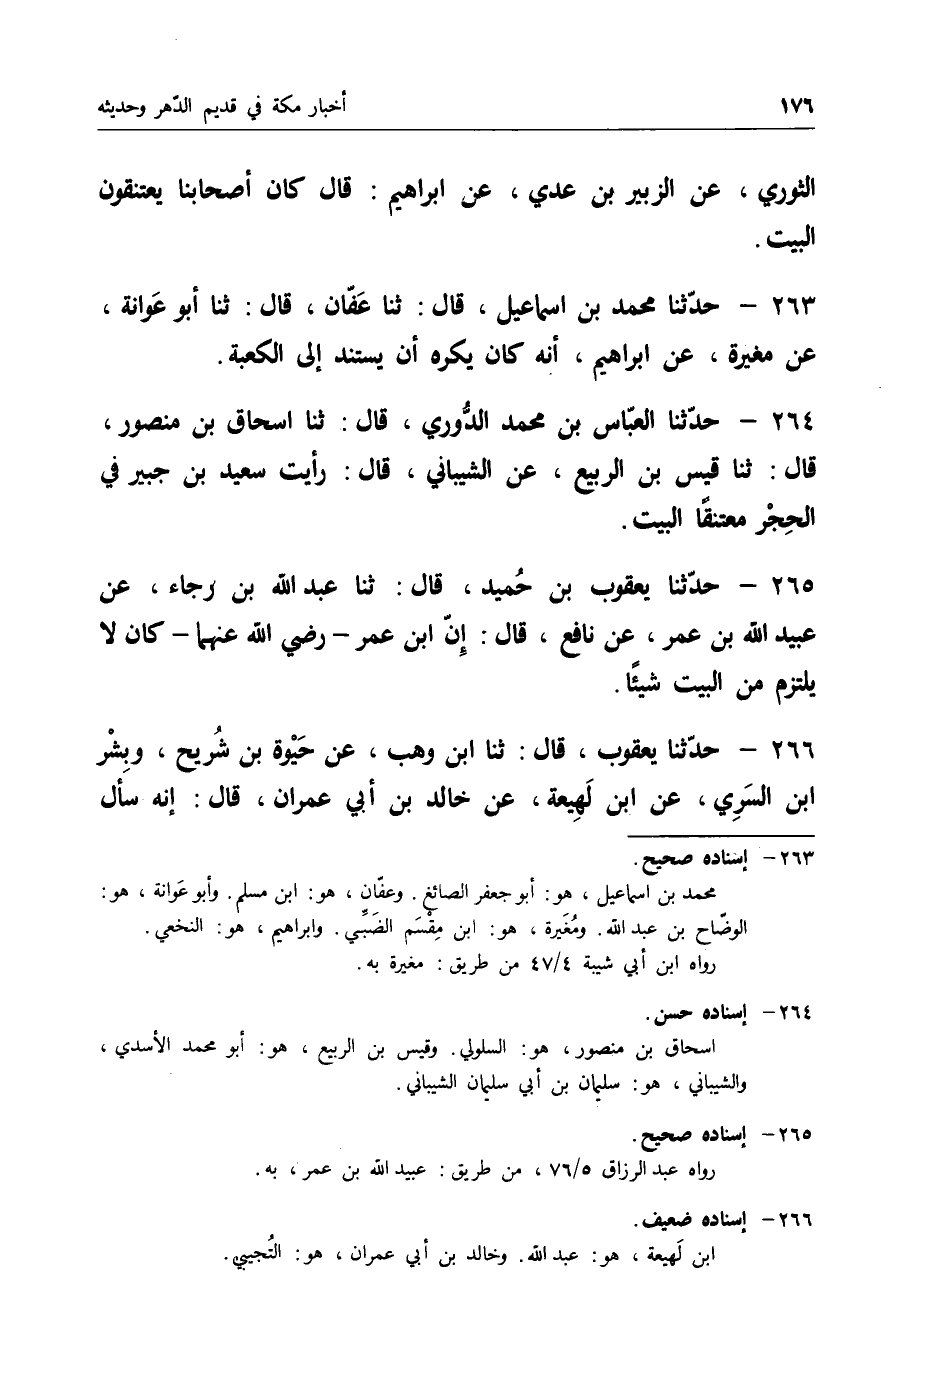 ١٧٦ أخبار مكة في قديم الدّهر وحديثه
الثوري ، عن الزبير بن عدي ، عن ابراهيم : قال كان أصحابنا يعتنقون
البيت .
٢٦٣ – حدّثنا محمد بن اسماعيل ، قال : ثنا عَفّان ، قال : ثنا أبو عَوانة ،
عن مغيرة ، عن ابراهيم ، أنه كان يكره أن يستند إلى الكعبة .
٢٦٤ – حدّثنا العبّاس بن محمد الدُّوري ، قال : ثنا اسحاق بن منصور ،
قال : ثنا قيس بن الربيع ، عن الشيباني ، قال : رأيت سعيد بن جبير في
الحِجْر معتنقًا البيت .
٢٦٥ – حدّثنا يعقوب بن حُميد ، قال : ثنا عبد الله بن رجاء ، عن
عبيد الله بن عمر ، عن نافع ، قال : إنّ ابن عمر – رضي الله عنهما – كان لا
يلتزم من البيت شيئًا .
٢٦٦ – حدّثنا يعقوب ، قال : ثنا ابن وهب ، عن حَيْوة بن شُريح ، وبِشْر
ابن السَرِي ، عن ابن لَهِيعة ، عن خالد بن أبي عمران ، قال : إنه سأل
٢٦٣ – إسناده صحيح .
محمد بن اسماعيل ، هو : أبو جعفر الصائغ . وعفّان ، هو : ابن مسلم . وأبو عَوانة ، هو :
الوضّاح بن عبد الله . ومُغَيرة ، هو : ابن مِقْسَم الضَبِّي . وابراهيم ، هو : النخعي .
رواه ابن أبي شيبة ٤٧/٤ من طريق : مغيرة به .
٢٦٤ – إسناده حسن .
اسحاق بن منصور ، هو : السلولي . وقيس بن الربيع ، هو : أبو محمد الأسدي ،
والشيباني ، هو : سليمان بن أبي سليمان الشيباني .
٢٦٥ – إسناده صحيح .
رواه عبد الرزاق ٧٦/٥ ، من طريق : عبيد الله بن عمر ، به .
٢٦٦ – إسناده ضعيف .
ابن لَهيعة ، هو : عبد الله . وخالد بن أبي عمران ، هو : التُجيبي .